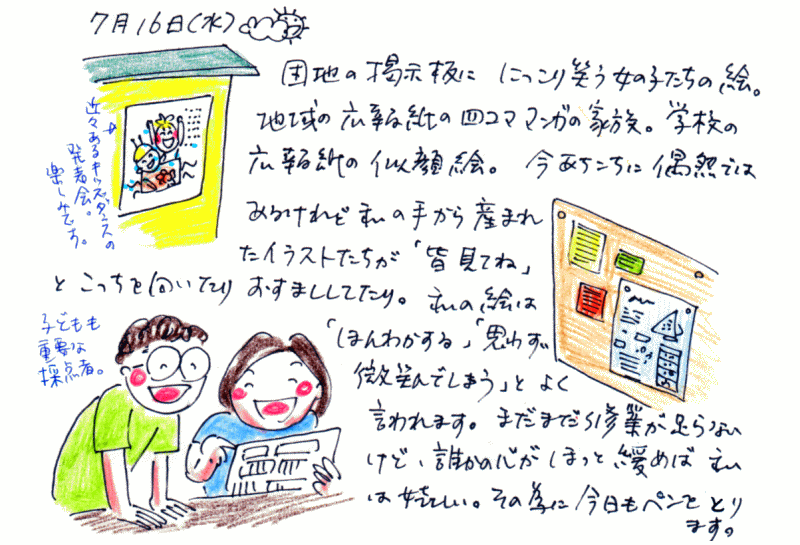 7月16日(水)
団地の掲示板に にっこり笑う女の子たちの絵。
地域の広報紙の四コママンガの家族。学校の
広報紙の似顔絵。 今あちこちに偶然では
あるけれど私の手から産まれ
たイラストたちが「皆見てね」
とこっちを向いたりおすまししてたり。私の絵は
「ほんわかする」「思わず
微笑んでしまう」とよく
言われます。まだまだ修業が足らない
けど、誰かの心がほっと緩めば私
は嬉しい。その為に今日もペンをとり
ます。
近々あるキッズダンスの
発表会。
楽しみです。
子どもも
重要な
採点者。